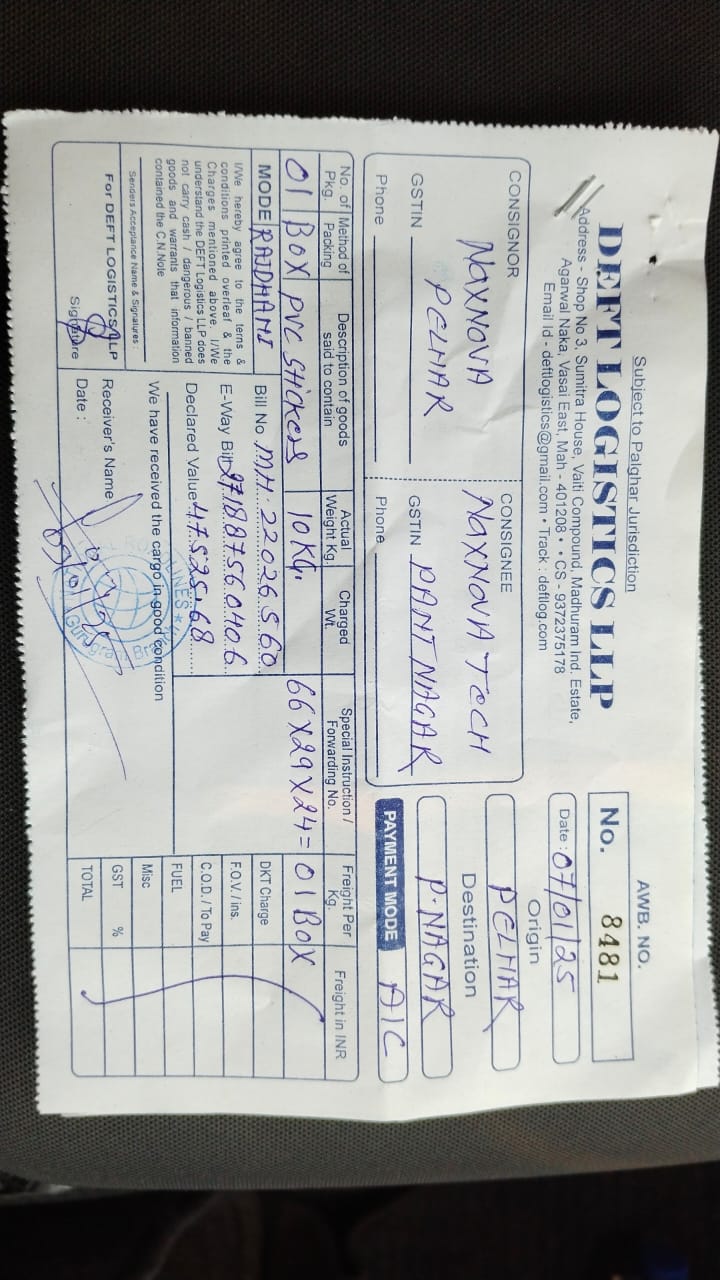 Subject to Palghar Jurisdiction
DEFT LOGISTICS LLP
Address - Shop No 3, Sumitra House, Valti Compound, Madhuram Ind. Estate,
Agarwal Naka, Vasai East, Mah - 401208 • • CS - 9372375178
Email Id - deftlogistics@gmail.com • Track : deftlog.com
AWB. NO.
No. 8481
Date : 07/01/25
CONSIGNOR
NAXNOVA
PELHAR
GSTIN
Phone
CONSIGNEE
NAXNOVA TECH
GSTIN PANT NAGAR
Phone
Origin
PELHAR
Destination
P.NAGAR
PAYMENT MODE A/C
No. of Pkg. Method of Packing Description of goods said to contain Actual Weight Kg. Charged Wt. Special Instruction / Forwarding No. Freight Per Kg. Freight in INR
01 BOX PVC Stickers 10 Kg. 66 X 29 X 24 = 01 BOX
MODE RADHANI
Bill No MH. 22026560
E-Way Bill 271887560406
Declared Value 47525.68
I/We hereby agree to the terns &
conditions printed overleaf & the
Charges mentioned above. I/We
understand the DEFT Logistics LLP does
not carry cash / dangerous / banned
goods and warrants that information
contained the C.N.Note
Senders Acceptance Name & Signatures :
For DEFT LOGISTICS LLP
Signature
We have received the cargo in good condition
Receiver's Name
Date :
DKT Charge
F.O.V. / ins.
C.O.D. / To Pay
FUEL
Misc
GST %
TOTAL